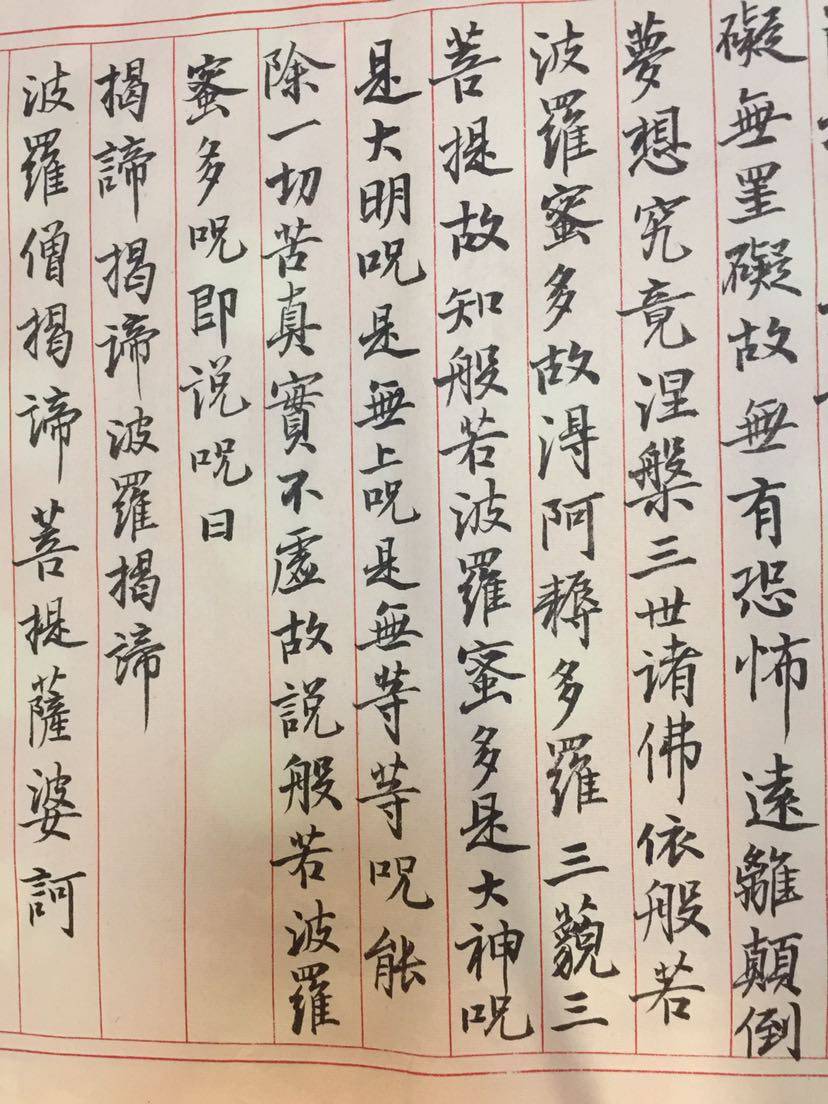 礙無罣礙故無有恐怖遠離顛倒
夢想究竟涅槃三世諸佛依般若
波羅蜜多故得阿耨多羅三藐三
菩提故知般若波羅蜜多是大神呪
是大明呪是無上呪是無等等呪能
除一切苦真實不虛故說般若波羅
蜜多呪即說呪曰
揭諦揭諦波羅揭諦
波羅僧揭諦菩提薩婆訶